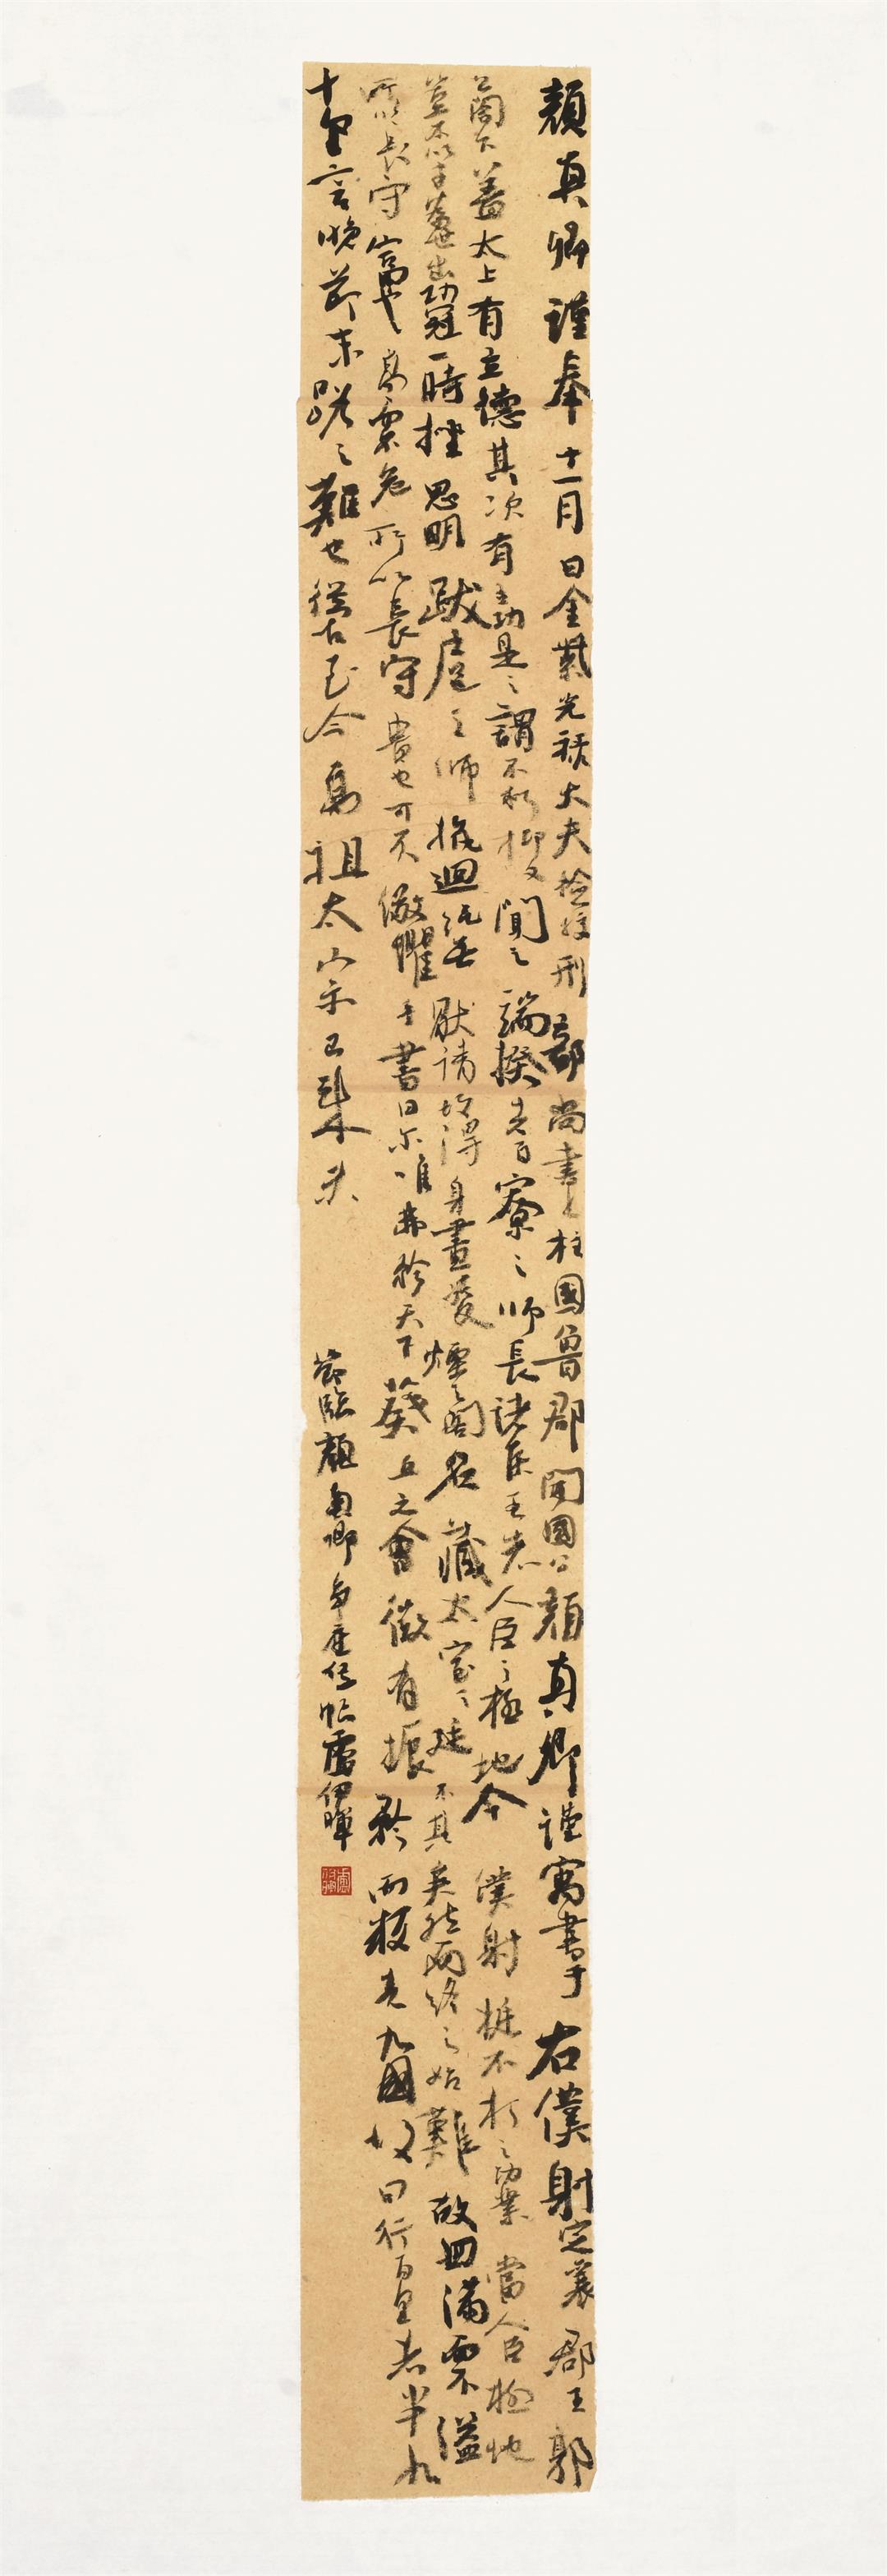 顏真卿謹奉十一月日金紫光祿大夫檢校刑部尚書上柱國魯郡開國公顏真卿謹寓書于右僕射定襄郡王郭
公閣下蓋太上有立德其次有立功是之謂不朽抑又聞之端揆者百寮之師長諸侯王者人臣之極地今僕射挺不朽之功業當人臣極地
豈不以才為世出功冠一時挫思明跋扈之師抗迴紇無厭請故得身畫凌煙之閣名藏太室之廷不其然而終之始難故曰滿而不溢
所以長守富也高而不危所以長守貴也可不儆懼乎書曰爾唯弗矜天下葵丘之會微有振矜而叛者九國故曰行百里者半九
十里言晚節末路之難也從古至今高祖太宗已來未
節臨顏真卿爭座位帖盧